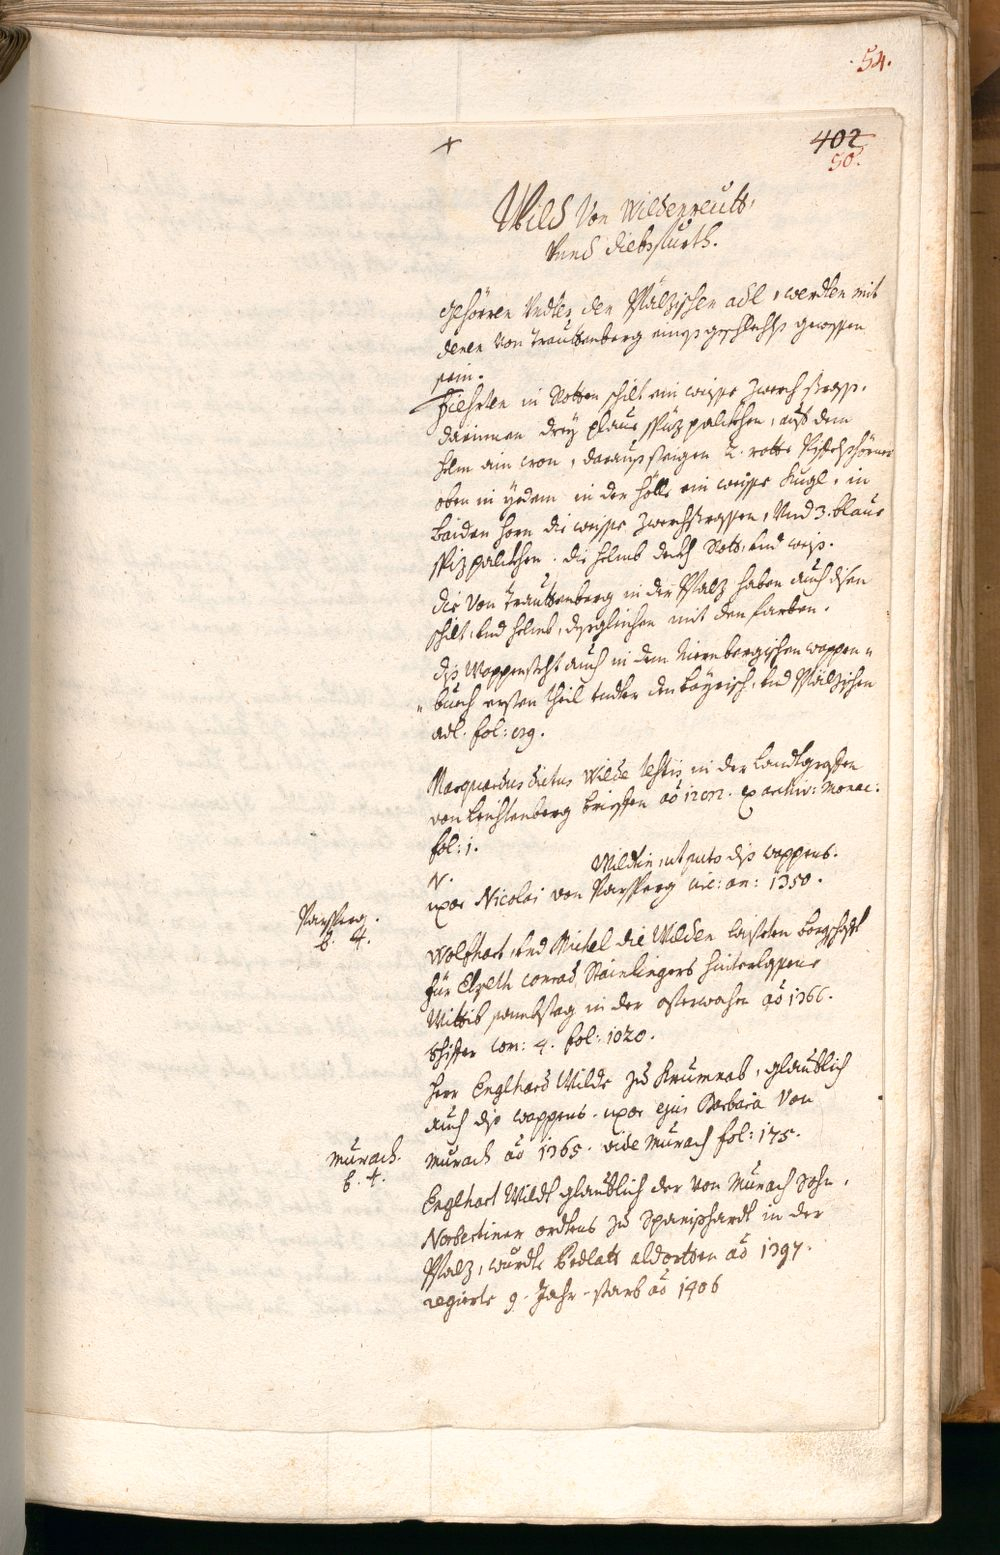 54.
+
402
50.
Wild Von Wildenreutt,
Vnnd diebsfurth.
gehören Vndter den Pfälzischen adl, werdten mit
denen Von Trauttenberg eines geschlechts gewessen
sein.
Fiehrten in Rotten schilt ein weisse zwerch strass,
darinnen drey plaue spizpalikhen, auf dem
helm ain cron, darauf steigen 2. rotte Piffelshörner
oben in yedem in der hölle ein weisse kugl, in
baiden horn die weisse zwerchstrassen, Vnd 3. blaue
spizpalikhen. die helmb deckh Rott, vnd weiss.
die Von Trauttenberg in der Pfalz haben auch disen
schilt, vnd helmb, desgleichen mit den farben.
diss Wappen steht auch in dem Niernbergischen wappen"
" buech ersten theil vndter den bayrisch, vnd Pfälzischen
adl. fol:
Marquardus dictus Wilde testis in der Landtgrafen
von Leuchtenberg brieffen aõ ex archiv: Monac:
fol: 1.
N. Wildtin, ut puto diss wappens.
uxor Nicolai von Parsperg circ: an: 1350.
Parsperg.
b. 4.
Wolfhart, vnd Michel die Wilden laisteten borgschafft
für Elspeth Conrad Stainlingers hinterlassene
Wittib sambstag in der osterwochen aõ 1366.
Schifer tom: 4. fol: 1020.
Herr Englhard Wilde zu Krumnab, glaublich
auch diss wappens. uxor ejus Barbara Von
Murach aõ 1365. vide Murach fol: 175.
Murach.
b. 4.
Englhart Wildt glaublich der von Murach Sohn,
Norbertiner ordtens zu Spainshardt in der
Pfalz, wurdte Prelatt aldortten aõ 1397.
regierte 9. Jahr. starb aõ 1406